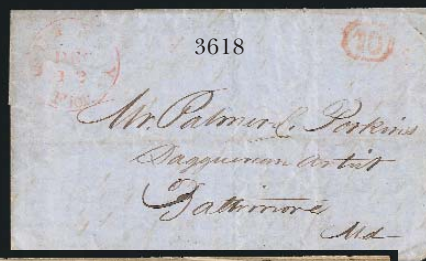 3618
10
Mr. Palmer L. Perkins
Daguerrean Artist
of
Baltimore
Md